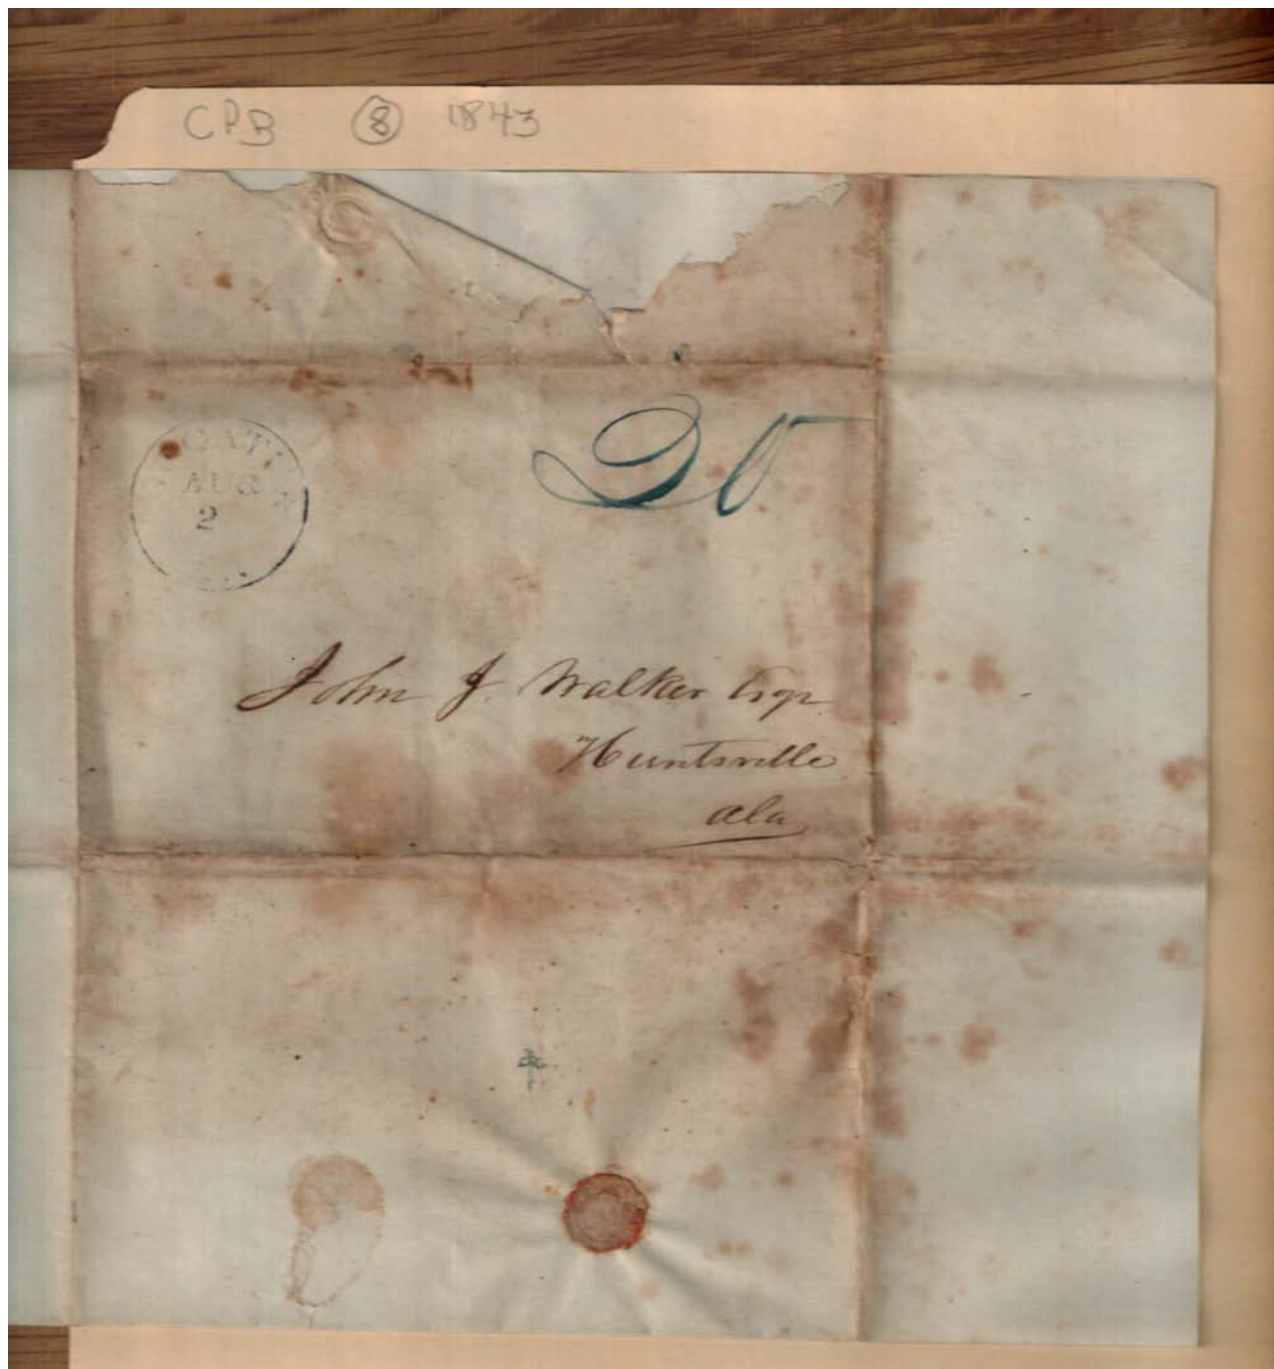 CPB 8 1843
AUG
2
20
John J. Walker Esqr
Huntsville
Ala